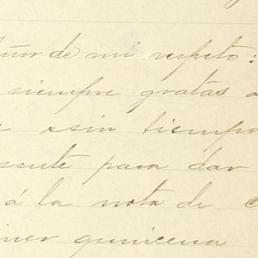 de mi respeto:
siempre gratas a
sin tiempo
para dar
á la nota de
quincena